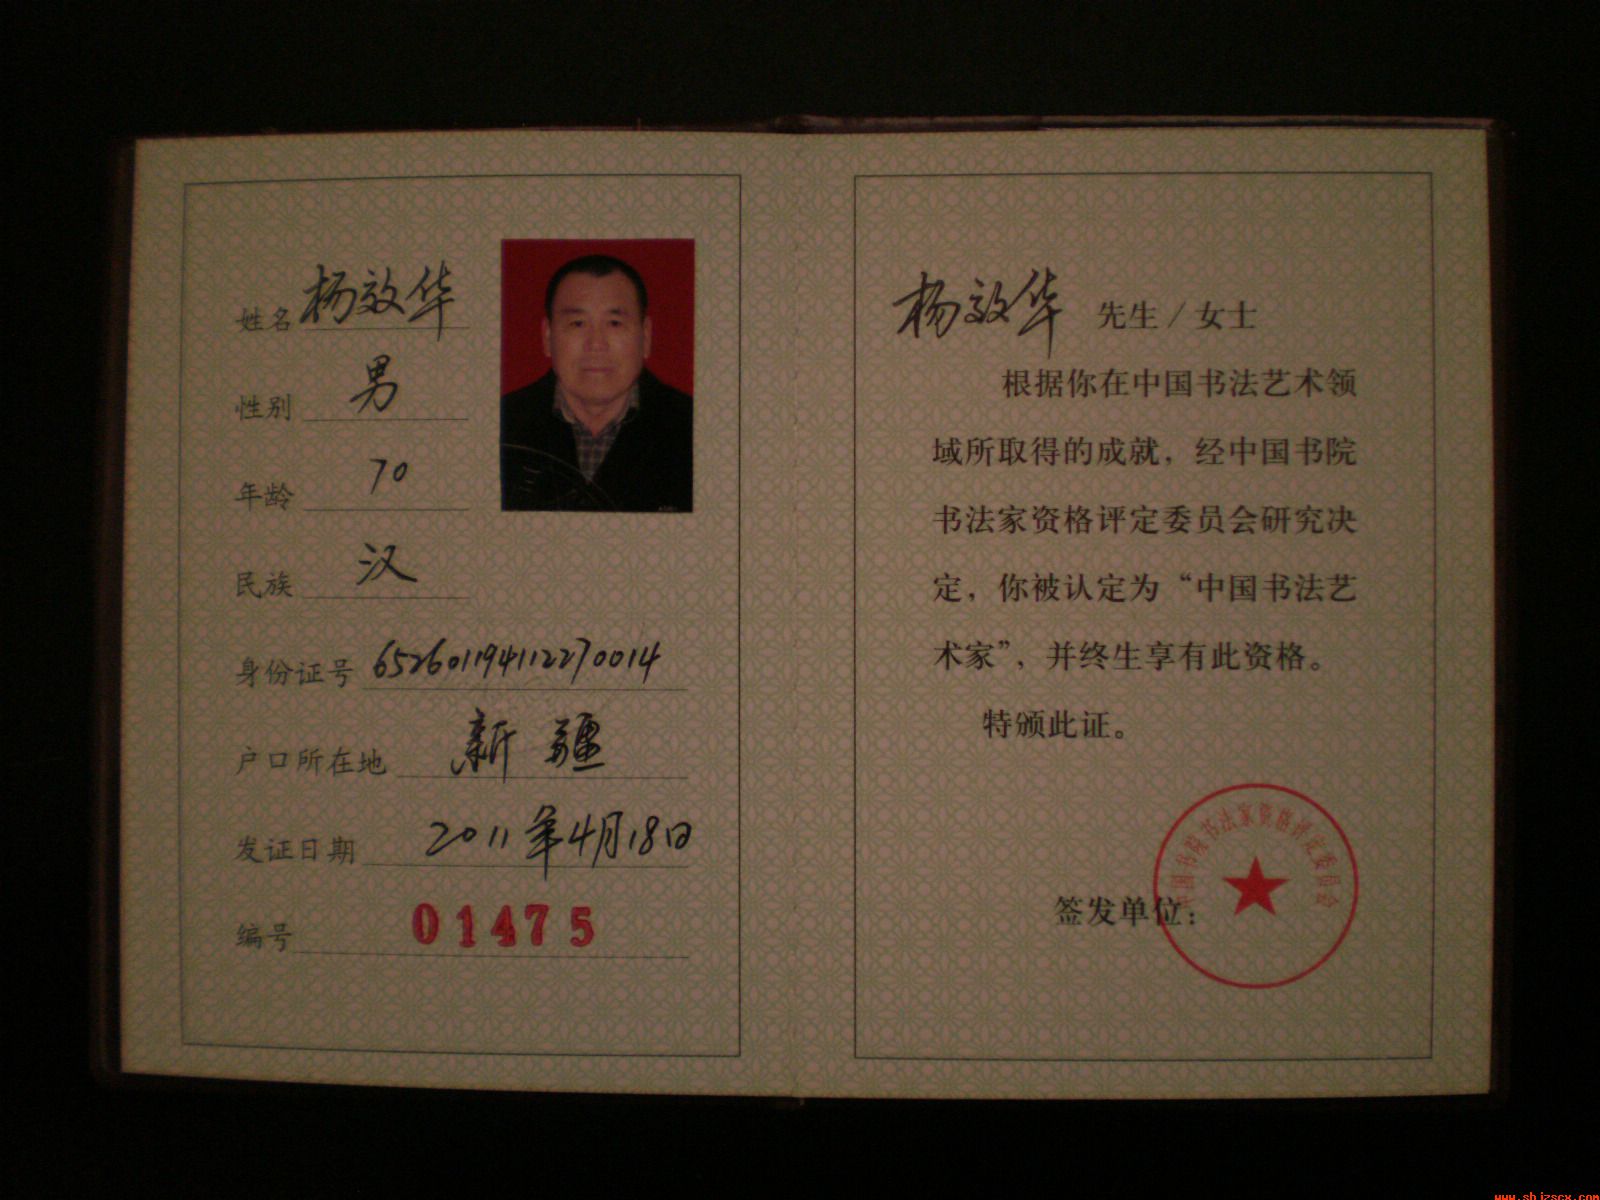 姓名 杨效华
性别 男
年龄 70
民族 汉
身份证号 652601194112270014
户口所在地 新疆
发证日期 2011年4月18日
编号 01475
杨效华 先生/女士
根据你在中国书法艺术领
域所取得的成就，经中国书院
书法家资格评定委员会研究决
定，你被认定为“中国书法艺
术家”，并终生享有此资格。
特颁此证。
中国书院书法家资格评定委员会
签发单位：
www.shjzscx.com